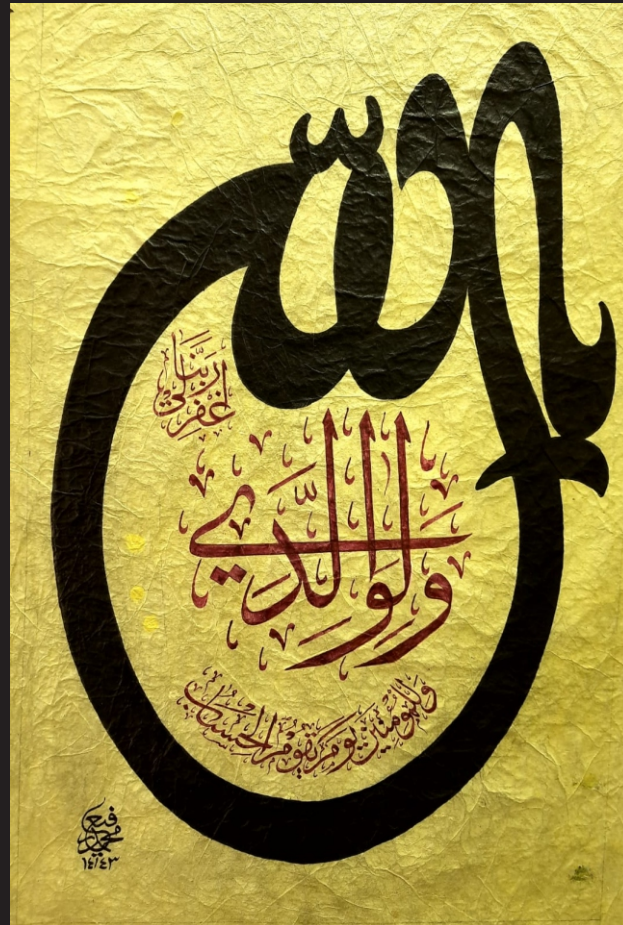 الله
ربنا
اغفر لي
ولوالدي
وللمؤمنين يوم يقوم الحساب
محمد رفيع
١٤٤٣